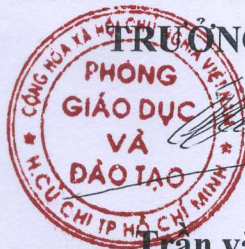 TRƯỞNG
CỘNG HÒA XÃ HỘI CHỦ NGHĨA VIỆT NAM
PHÒNG
GIÁO DỤC
VÀ
ĐÀO TẠO
H.CỦ CHI TP HỒ CHÍ MINH
Trần